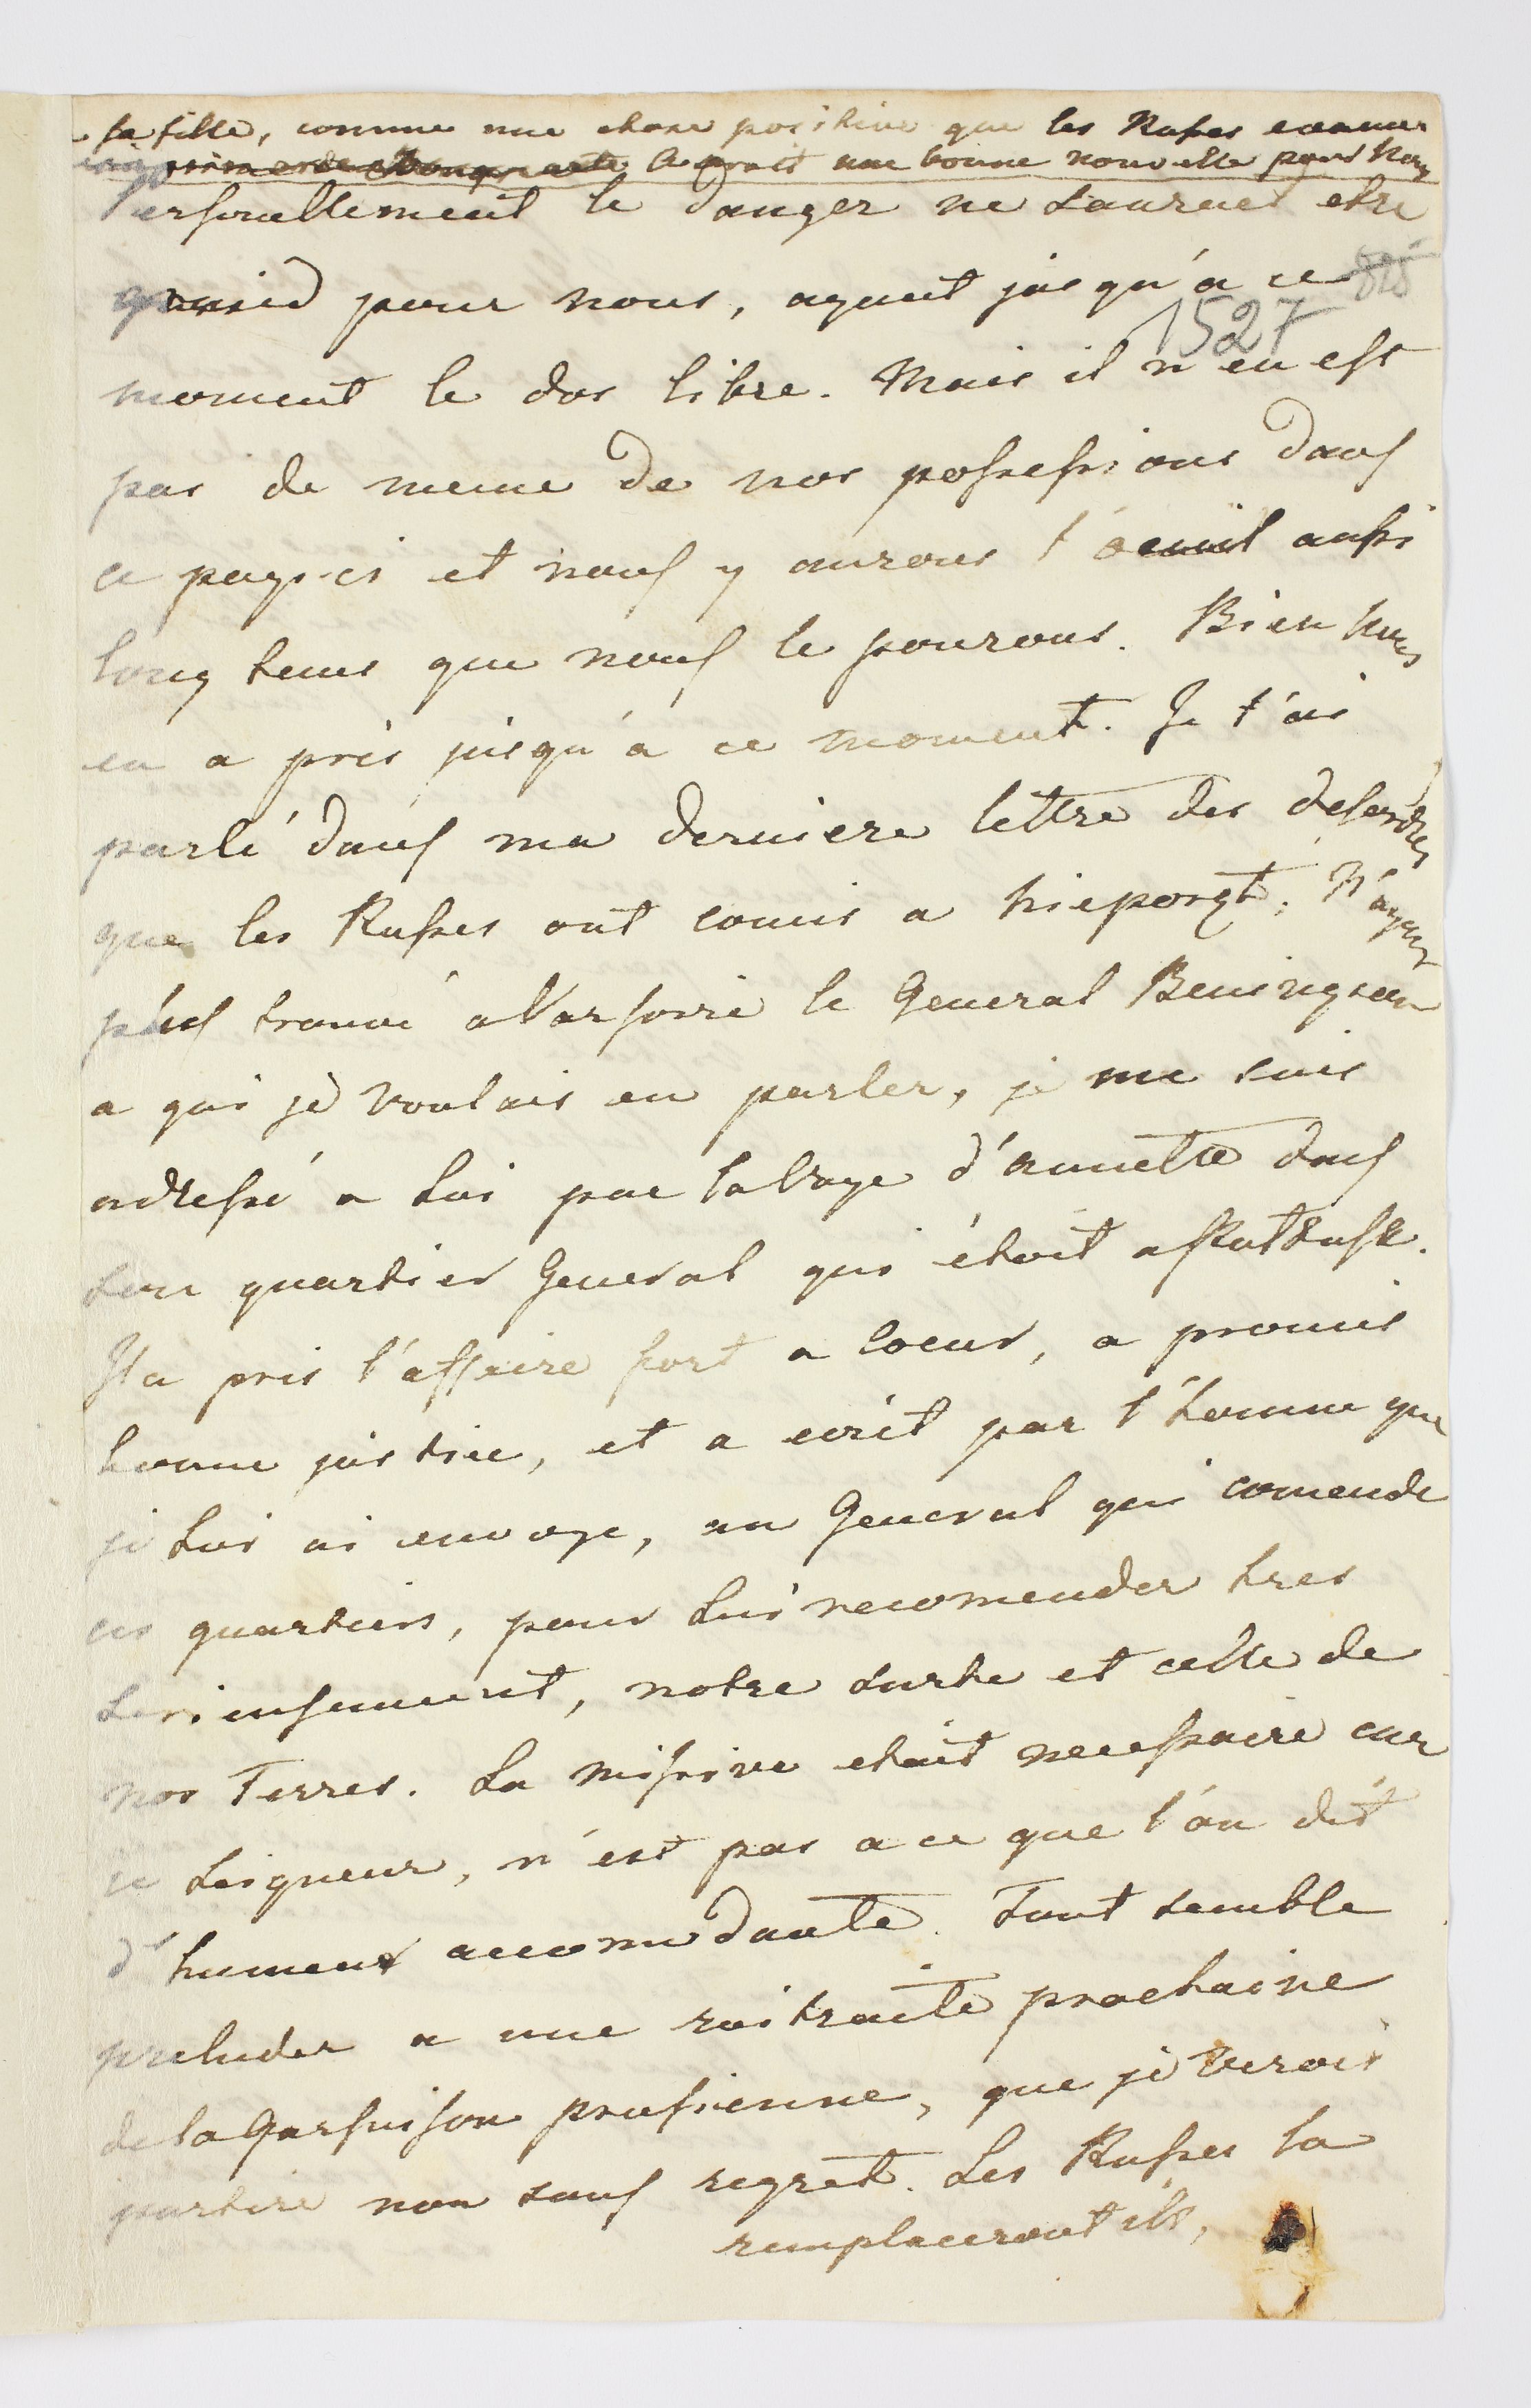 sa fille, comme une chose positive que les Russes
ce seroit une bonne nouvelle pour Nous
Personellement le danger ne sauroit etre
grand pour nous, ayant jusqu'a ce
828
1527
moment le dos libre. Mais il n'en est
pas de meme de nos possessions dans
ce pays-ci et nous y aurons l'oeuil aussi
long tems que nous le pourons. Bien nous
en a pris jusqu'à ce moment. Je t'ai
parlé dans ma derniere lettre des desordres
que les Russes ont comis a Nieporęt; N'ayant
plus trouvé a Varsovie le General Beningsen
a qui je voulais en parler, je me suis
adressé a lui par la voye d'annette dans
son quartier General qui étoit a Pultusk.
Il a pris l'affaire fort a coeur, a promis
bonne justice, et a ecrit par l'homme que
je lui ai envoye, au General qui comende
ces quartiers, pour lui recomender tres
serieusement, notre surte et celle de
nos Terres. La missive etait necessaire car
ce Seigneur, n'est pas a ce que l'on dit
d'humeur accomodante. Tout semble
preluder a une raitraite prochaine
de la Garnison prussienne, que je verois
partire non sans regret. Les Russes la
remplaceront ils,